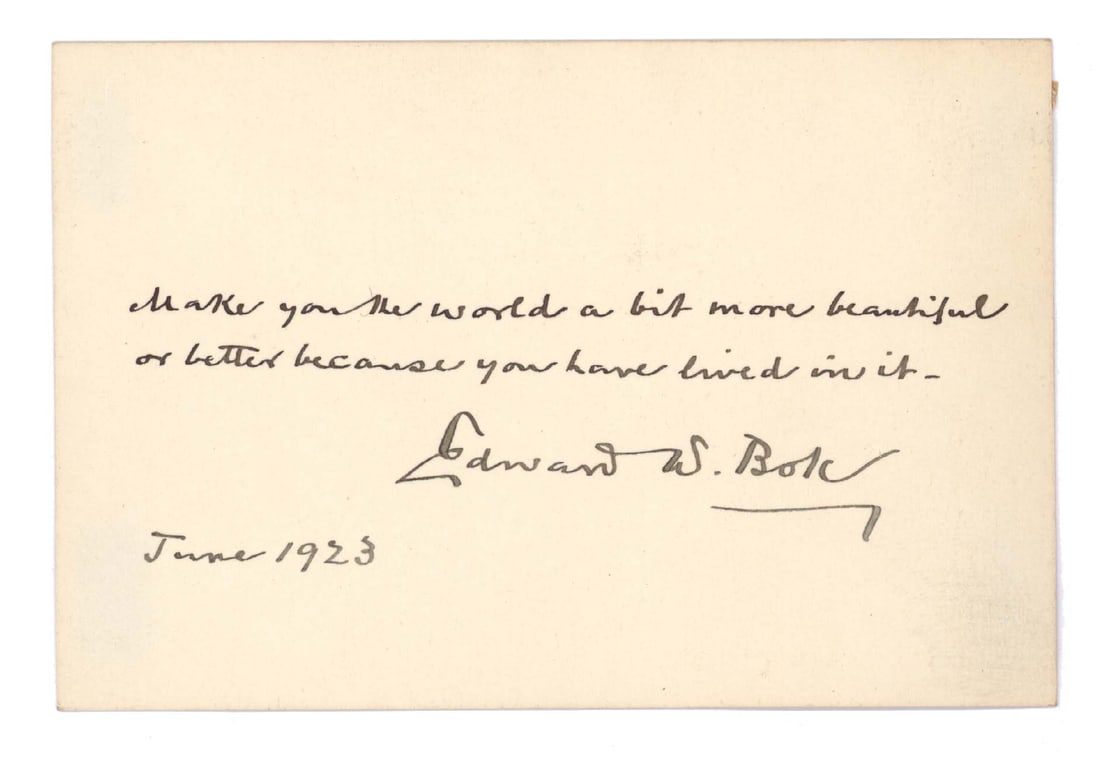 Make you the world a bit more beautiful
or better because you have lived in it –
Edward W. Bok
June 1923